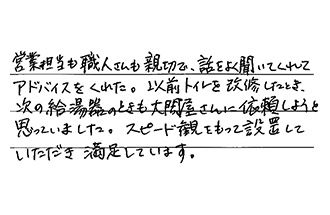 営業担当も職人さんも親切で、話をよく聞いてくれて
アドバイスをくれた。以前トイレを改修したとき、
次の給湯器のときも大問屋さんに依頼しようと
思っていました。スピード観をもって設置して
いただき満足しています。